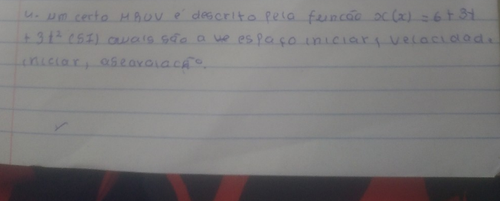 4. um certo MRUV é descrito pela funcão x(x) = 6 + 3t
+ 3t² (SI) quais são a espaço iniciar, velocidad.
iniciar, aseravação.